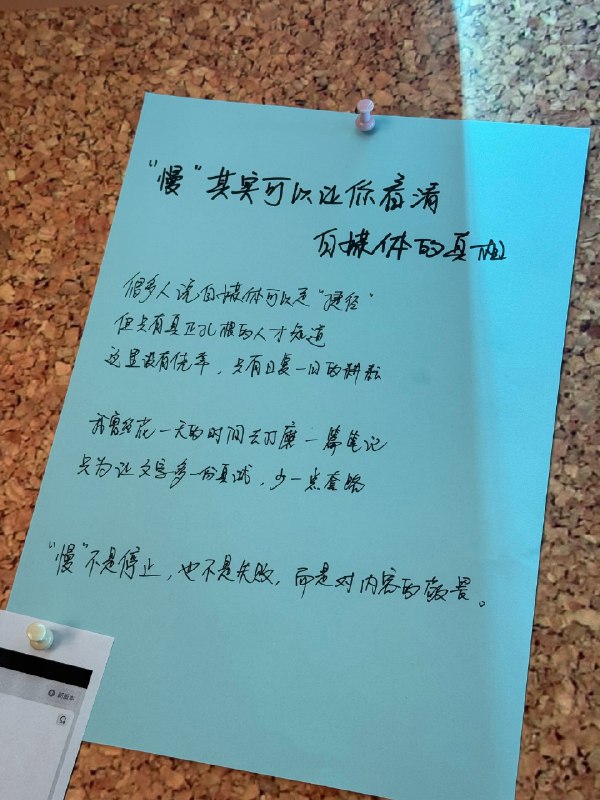 "慢"其实可以让你看清
自媒体的真相
很多人说自媒体可以是"捷径"
但只有真正扎根的人才知道
这里没有优率，只有日复一日的耕耘
我曾经花一天的时间去打磨一篇笔记
只为让文字多一份真诚，少一点套路
"慢"不是停止，也不是失败，而是对内容的敬畏。
新版本